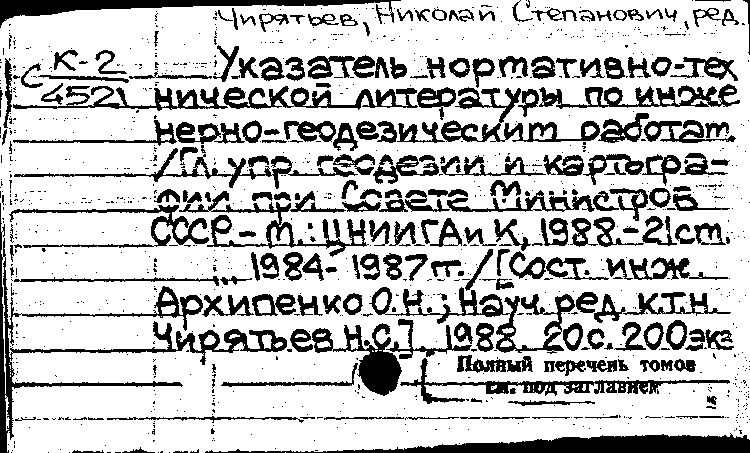 Чирятьев, Николай Степанович, ред.
С К-2
4521
Указатель нормативно-тех
нической литературы по инже
нерно-геодезическим работам.
/Гл. упр. геодезии и картогра-
фии при Совете Министров
СССР.- М.: ЦНИИГАиК, 1988.-21см.
... 1984-1987 гг. / [Сост. инж.
Архипенко О.Н.; Науч. ред. к.т.н.
Чирятьев Н.С.]. 1988. 20с. 200экз
Полный перечень томов
см. под заглавием